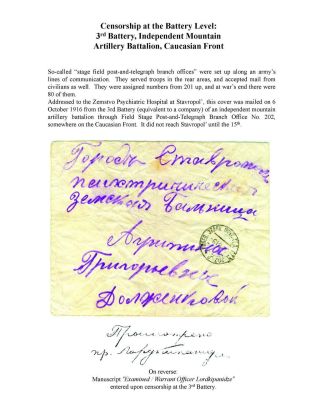 Censorship at the Battery Level:
3rd Battery, Independent Mountain
Artillery Battalion, Caucasian Front
So-called "stage field post-and-telegraph branch offices" were set up along an army's
lines of communication. They served troops in the rear areas, and accepted mail from
civilians as well. They were assigned numbers from 201 up, and at war's end there were
80 of them.
Addressed to the Zemstvo Psychiatric Hospital at Stavropol', this cover was mailed on 6
October 1916 from the 3rd Battery (equivalent to a company) of an independent mountain
artillery battalion through Field Stage Post-and-Telegraph Branch Office No. 202,
somewhere on the Caucasian Front. It did not reach Stavropol' until the 15th.
Городъ Ставрополь
Земская Больница
Григорьевне
Долженковой
Просмотрено
пр. Лордкипанидзе
On reverse:
Manuscript "Examined / Warrant Officer Lordkipanidze"
entered upon censorship at the 3rd Battery.